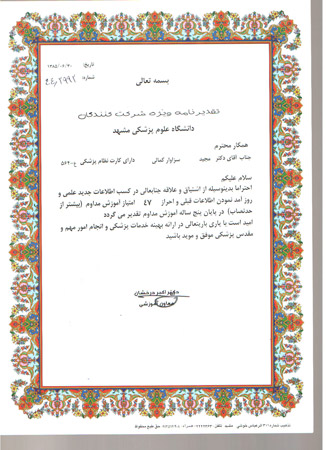 تاریخ: ۱۳۸۵/۰۶/۳۰
شماره: ۲۹۹۲
بسمه تعالی
تقدیرنامه ویژه شرکت کنندگان
دانشگاه علوم پزشکی مشهد
همکار محترم
جناب آقای دکتر مجید سزاوار کمالی دارای کارت نظام پزشکی
سلام علیکم
احتراما بدینوسیله از اشتیاق و علاقه جنابعالی در کسب اطلاعات جدید علمی و
روز آمد نمودن اطلاعات قبلی و احراز ۴۷ امتیاز آموزش مداوم (بیشتر از
حدنصاب) در پایان پنج ساله آموزش مداوم تقدیر می گردد
امید است با یاری باریتعالی در ارائه بهینه خدمات پزشکی و انجام امور مهم و
مقدس پزشکی موفق و موید باشید
دکتر اکبر درخشان
معاون آموزشی
حق طبع محفوظ